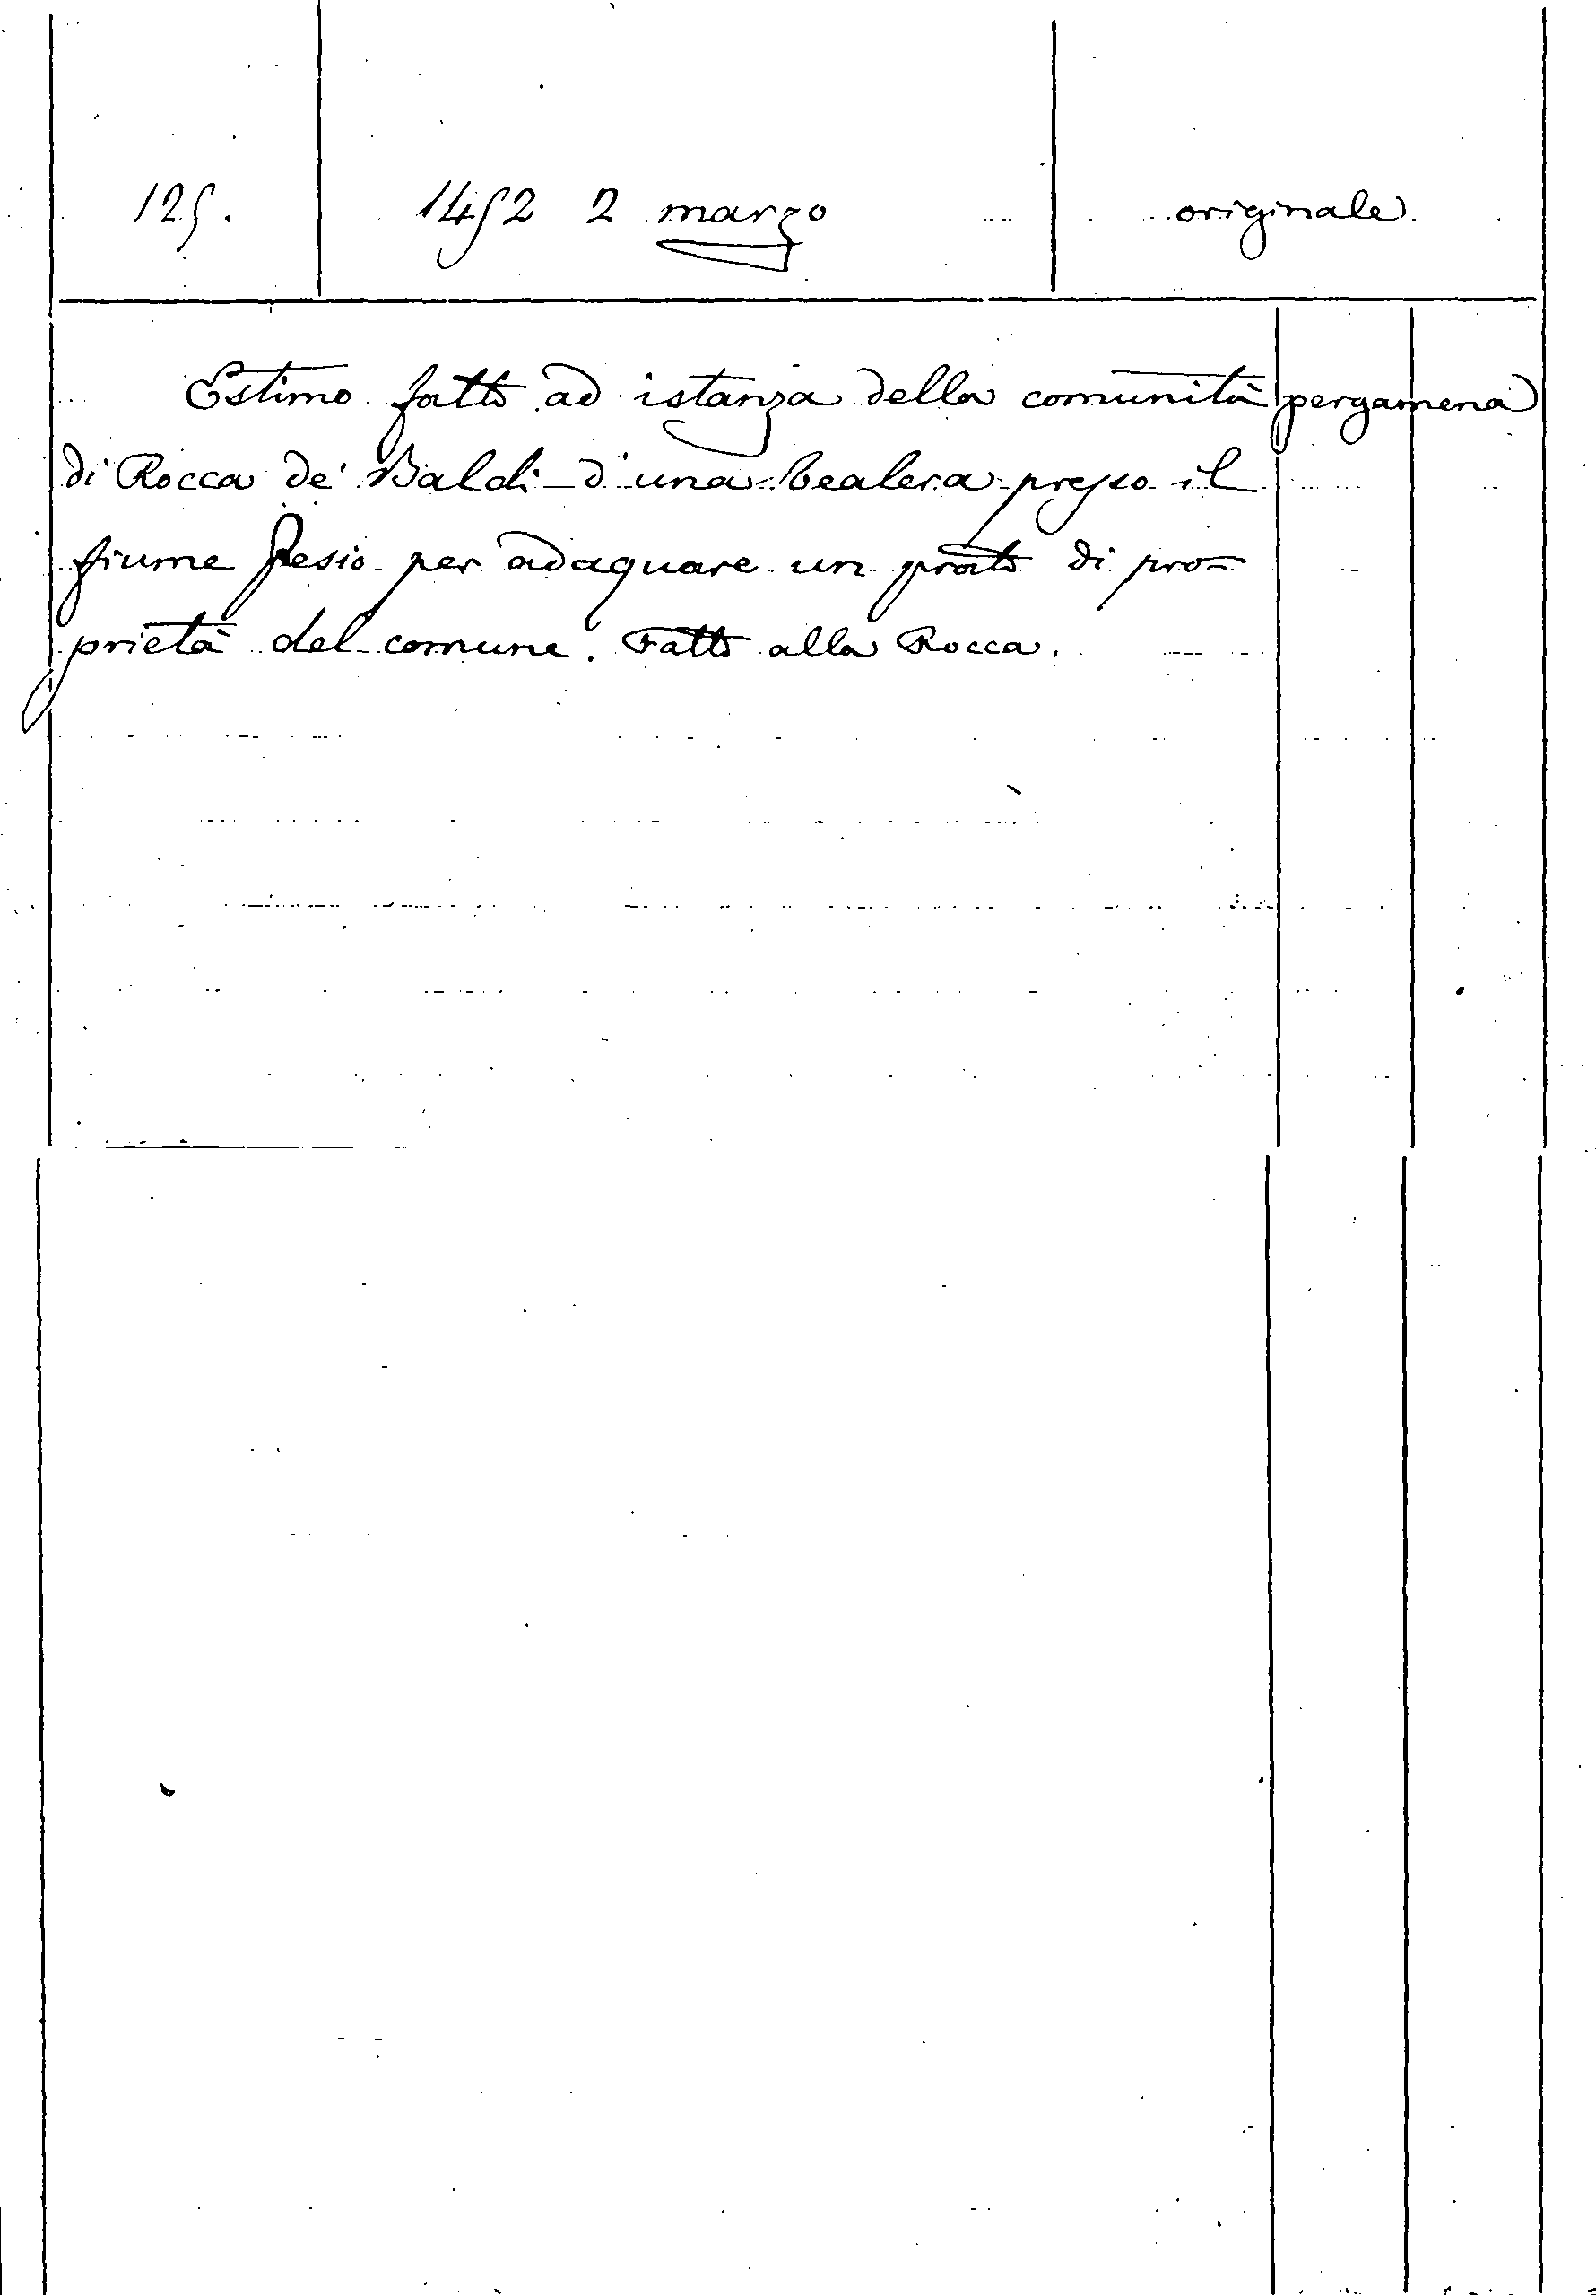 125. 1452 2 marzo originale
Estimo fatto ad istanza della comunità pergamena
di Rocca de' Baldi d'una bealera presso il
fiume Pesio per adaquare un prato di pro=
prietà del comune. Fatto alla Rocca.